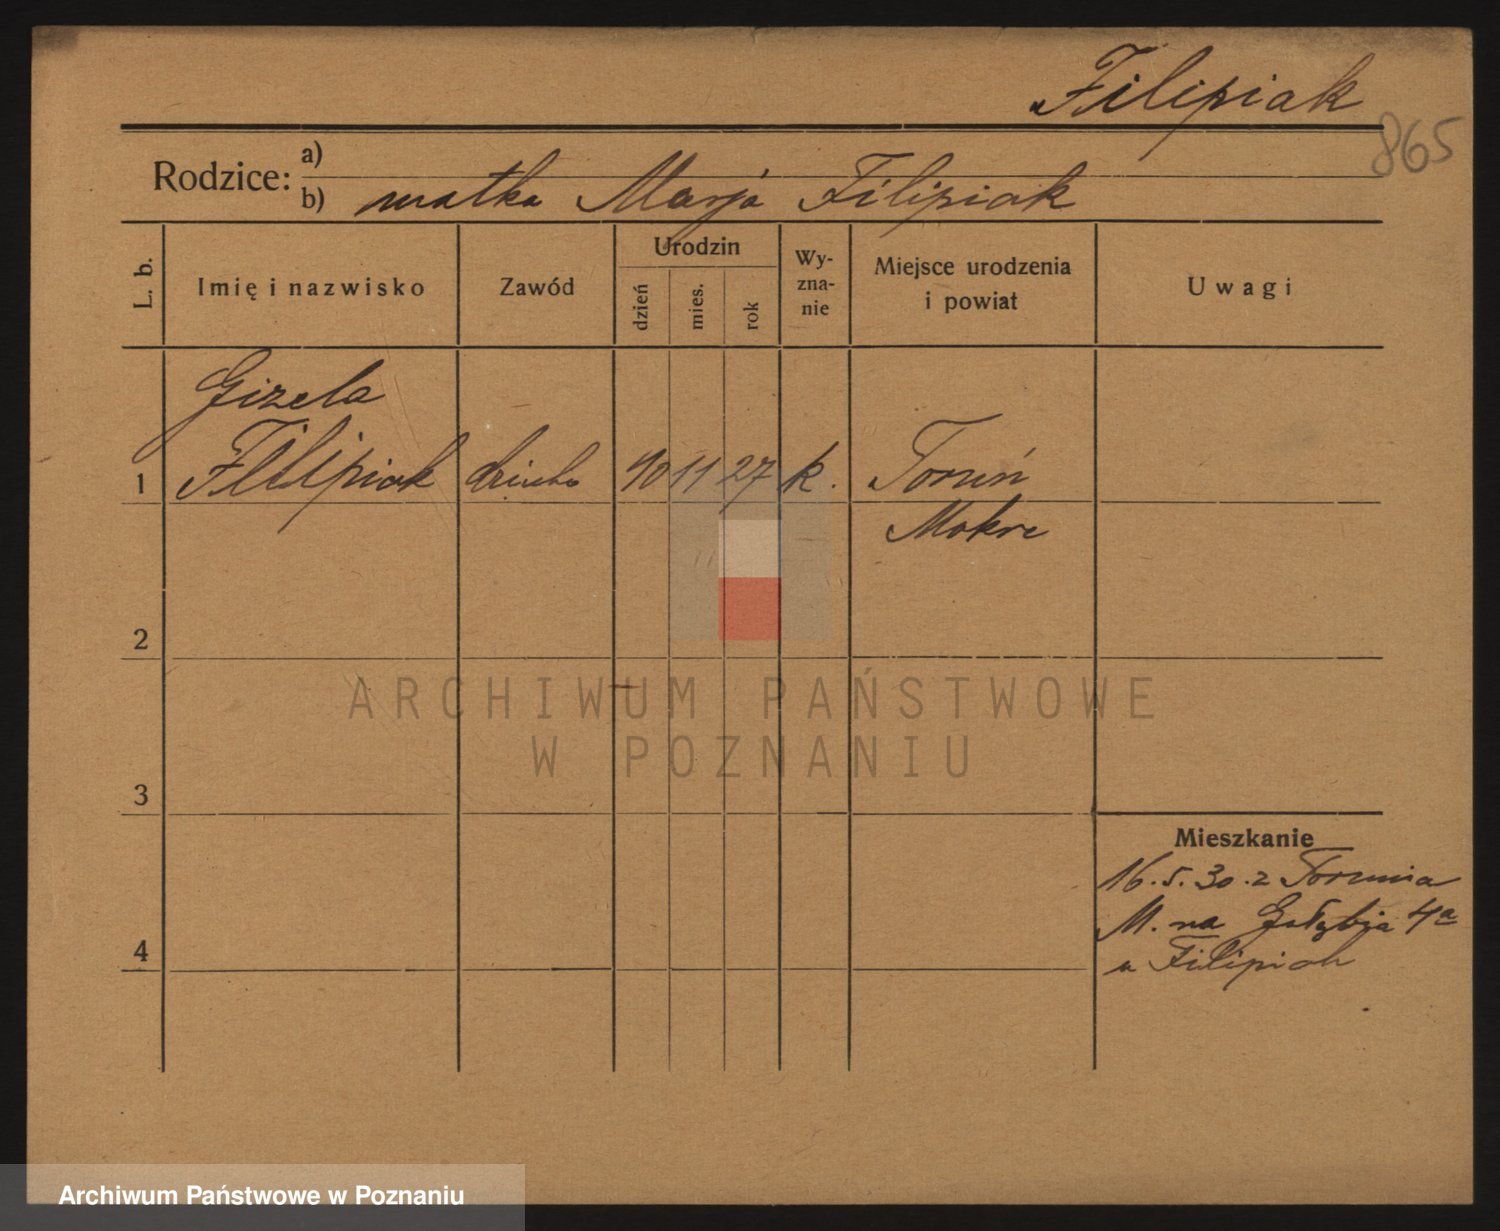 Filipiak
865
Rodzice: a)
b) matka Marja Filipiak
L. b.
Imię i nazwisko
Zawód
Urodzin
dzień
mies.
rok
Wy-
zna-
nie
Miejsce urodzenia
i powiat
Uwagi
Gizela
1 Filipiak dziecko 10 11 27 k. Toruń
Mokre
2
3
4
Mieszkanie
16.5.30. z Torunia
M. na Gołębia 4a
u Filipiak
ARCHIWUM PAŃSTWOWE
W POZNANIU
Archiwum Państwowe w Poznaniu